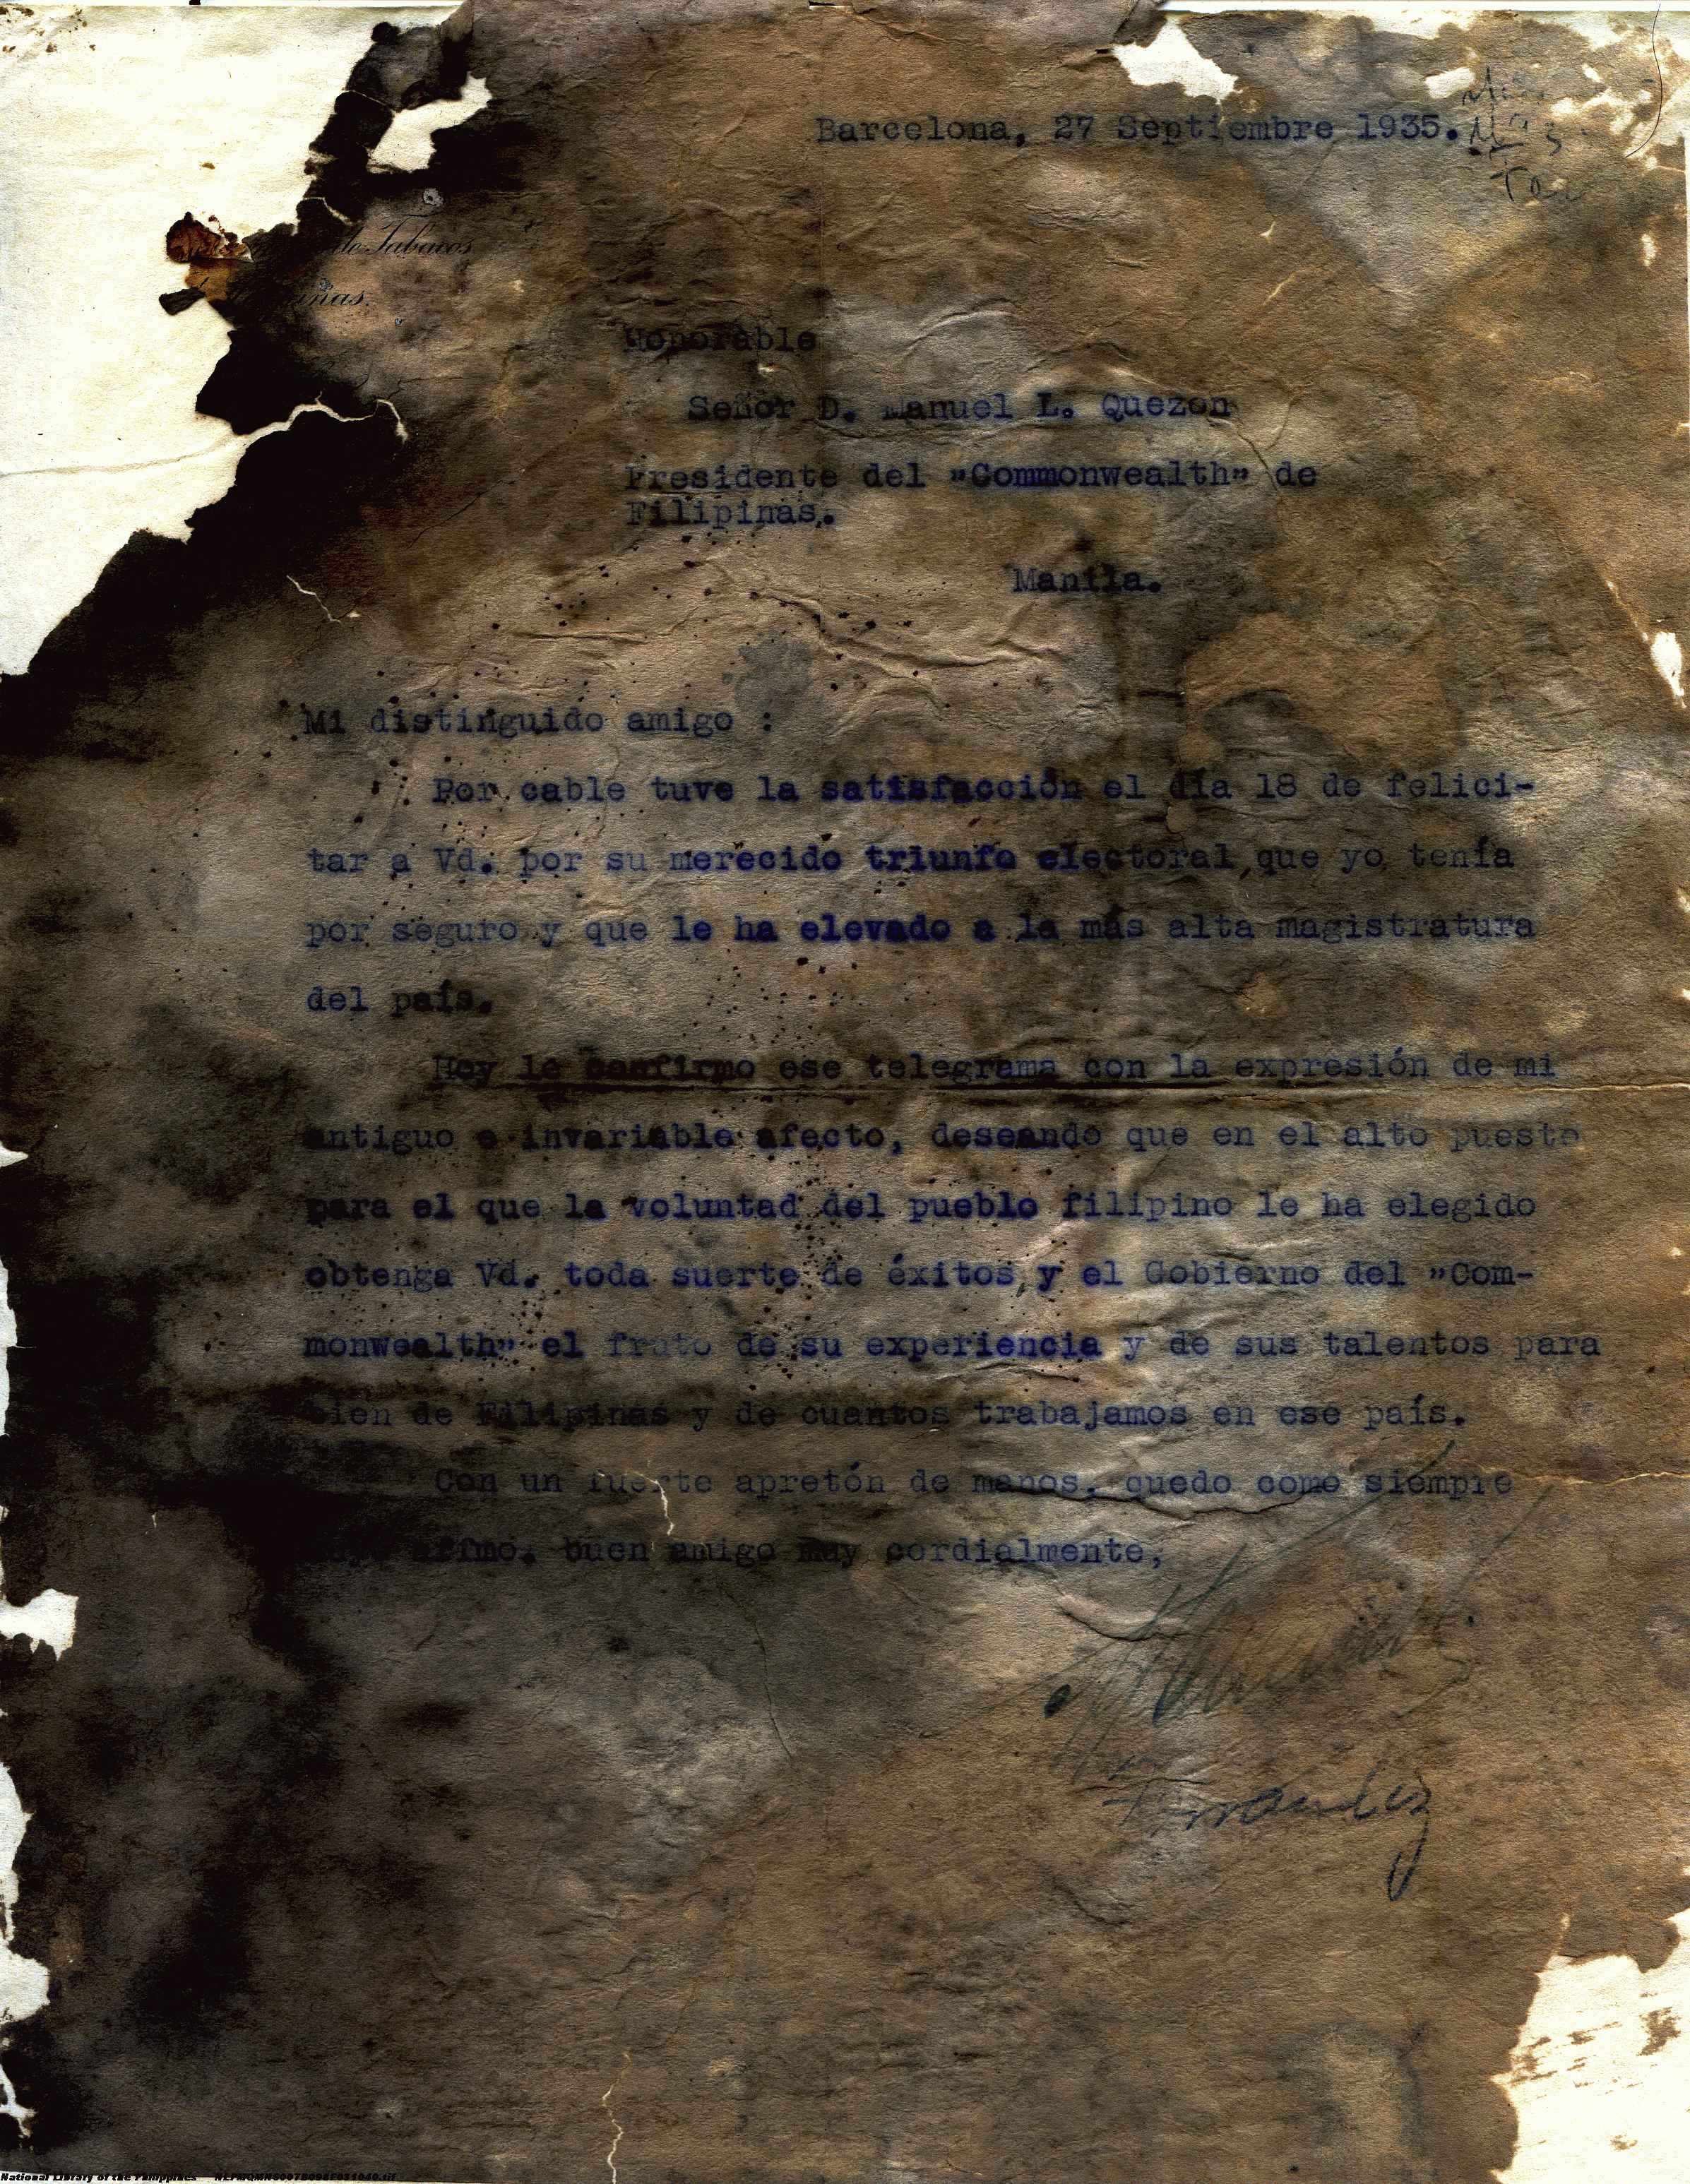 Barcelona, 27 Septiembre 1935.
de Tabacos
Honorable
Señor D. Manuel L. Quezon
Presidente del "Commonwealth" de
Filipinas.
Manila.
Mi distinguido amigo :
Por cable tuve la satisfacción el día 18 de felici-
tar a Vd. por su merecido triunfo electoral, que yo tenía
por seguro y que le ha elevado a la más alta magistratura
del país.
Hoy le confirmo ese telegrama con la expresión de mi
antiguo e invariable afecto, deseando que en el alto puesto
para el que la voluntad del pueblo filipino le ha elegido
obtenga Vd. toda suerte de éxitos, y el Gobierno del "Com-
monwealth" el fruto de su experiencia y de sus talentos para
bien de Filipinas y de cuantos trabajamos en ese país.
Con un fuerte apretón de manos, quedo como siempre
afmo. buen amigo muy cordialmente,
National Library of the Philippines